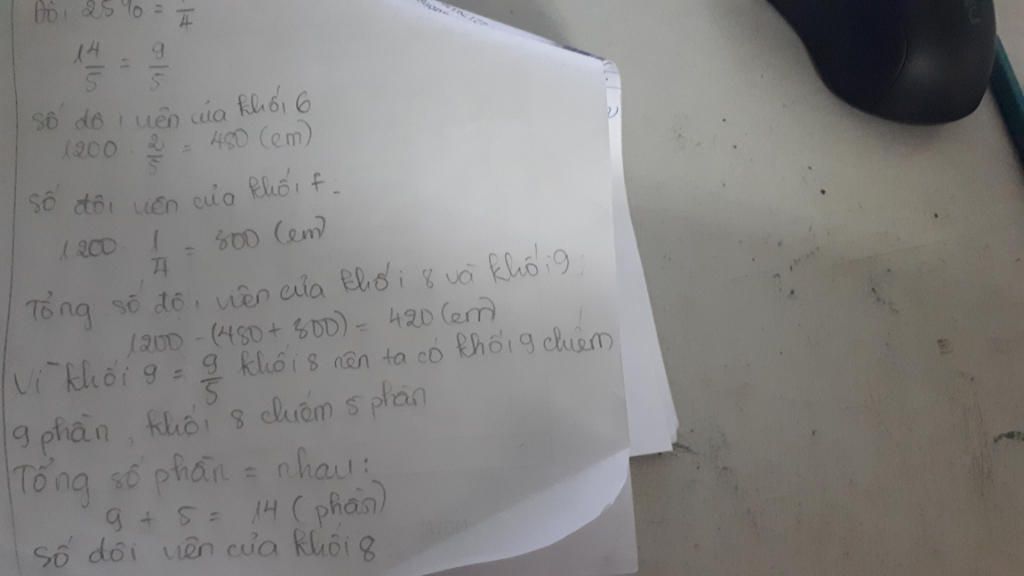 Đổi 25% = 1/4
14/5 = 9/5
Số đội viên của khối 6
1200 . 2/5 = 480 (em)
Số đội viên của khối 7.
1200 . 1/4 = 300 (em)
Tổng số đội viên của khối 8 và khối 9:
1200 - (480 + 300) = 420 (em)
Vì khối 9 = 9/5 khối 8 nên ta có khối 9 chiếm
9 phần, khối 8 chiếm 5 phần
Tổng số phần = nhau:
9 + 5 = 14 (phần)
Số đội viên của khối 8